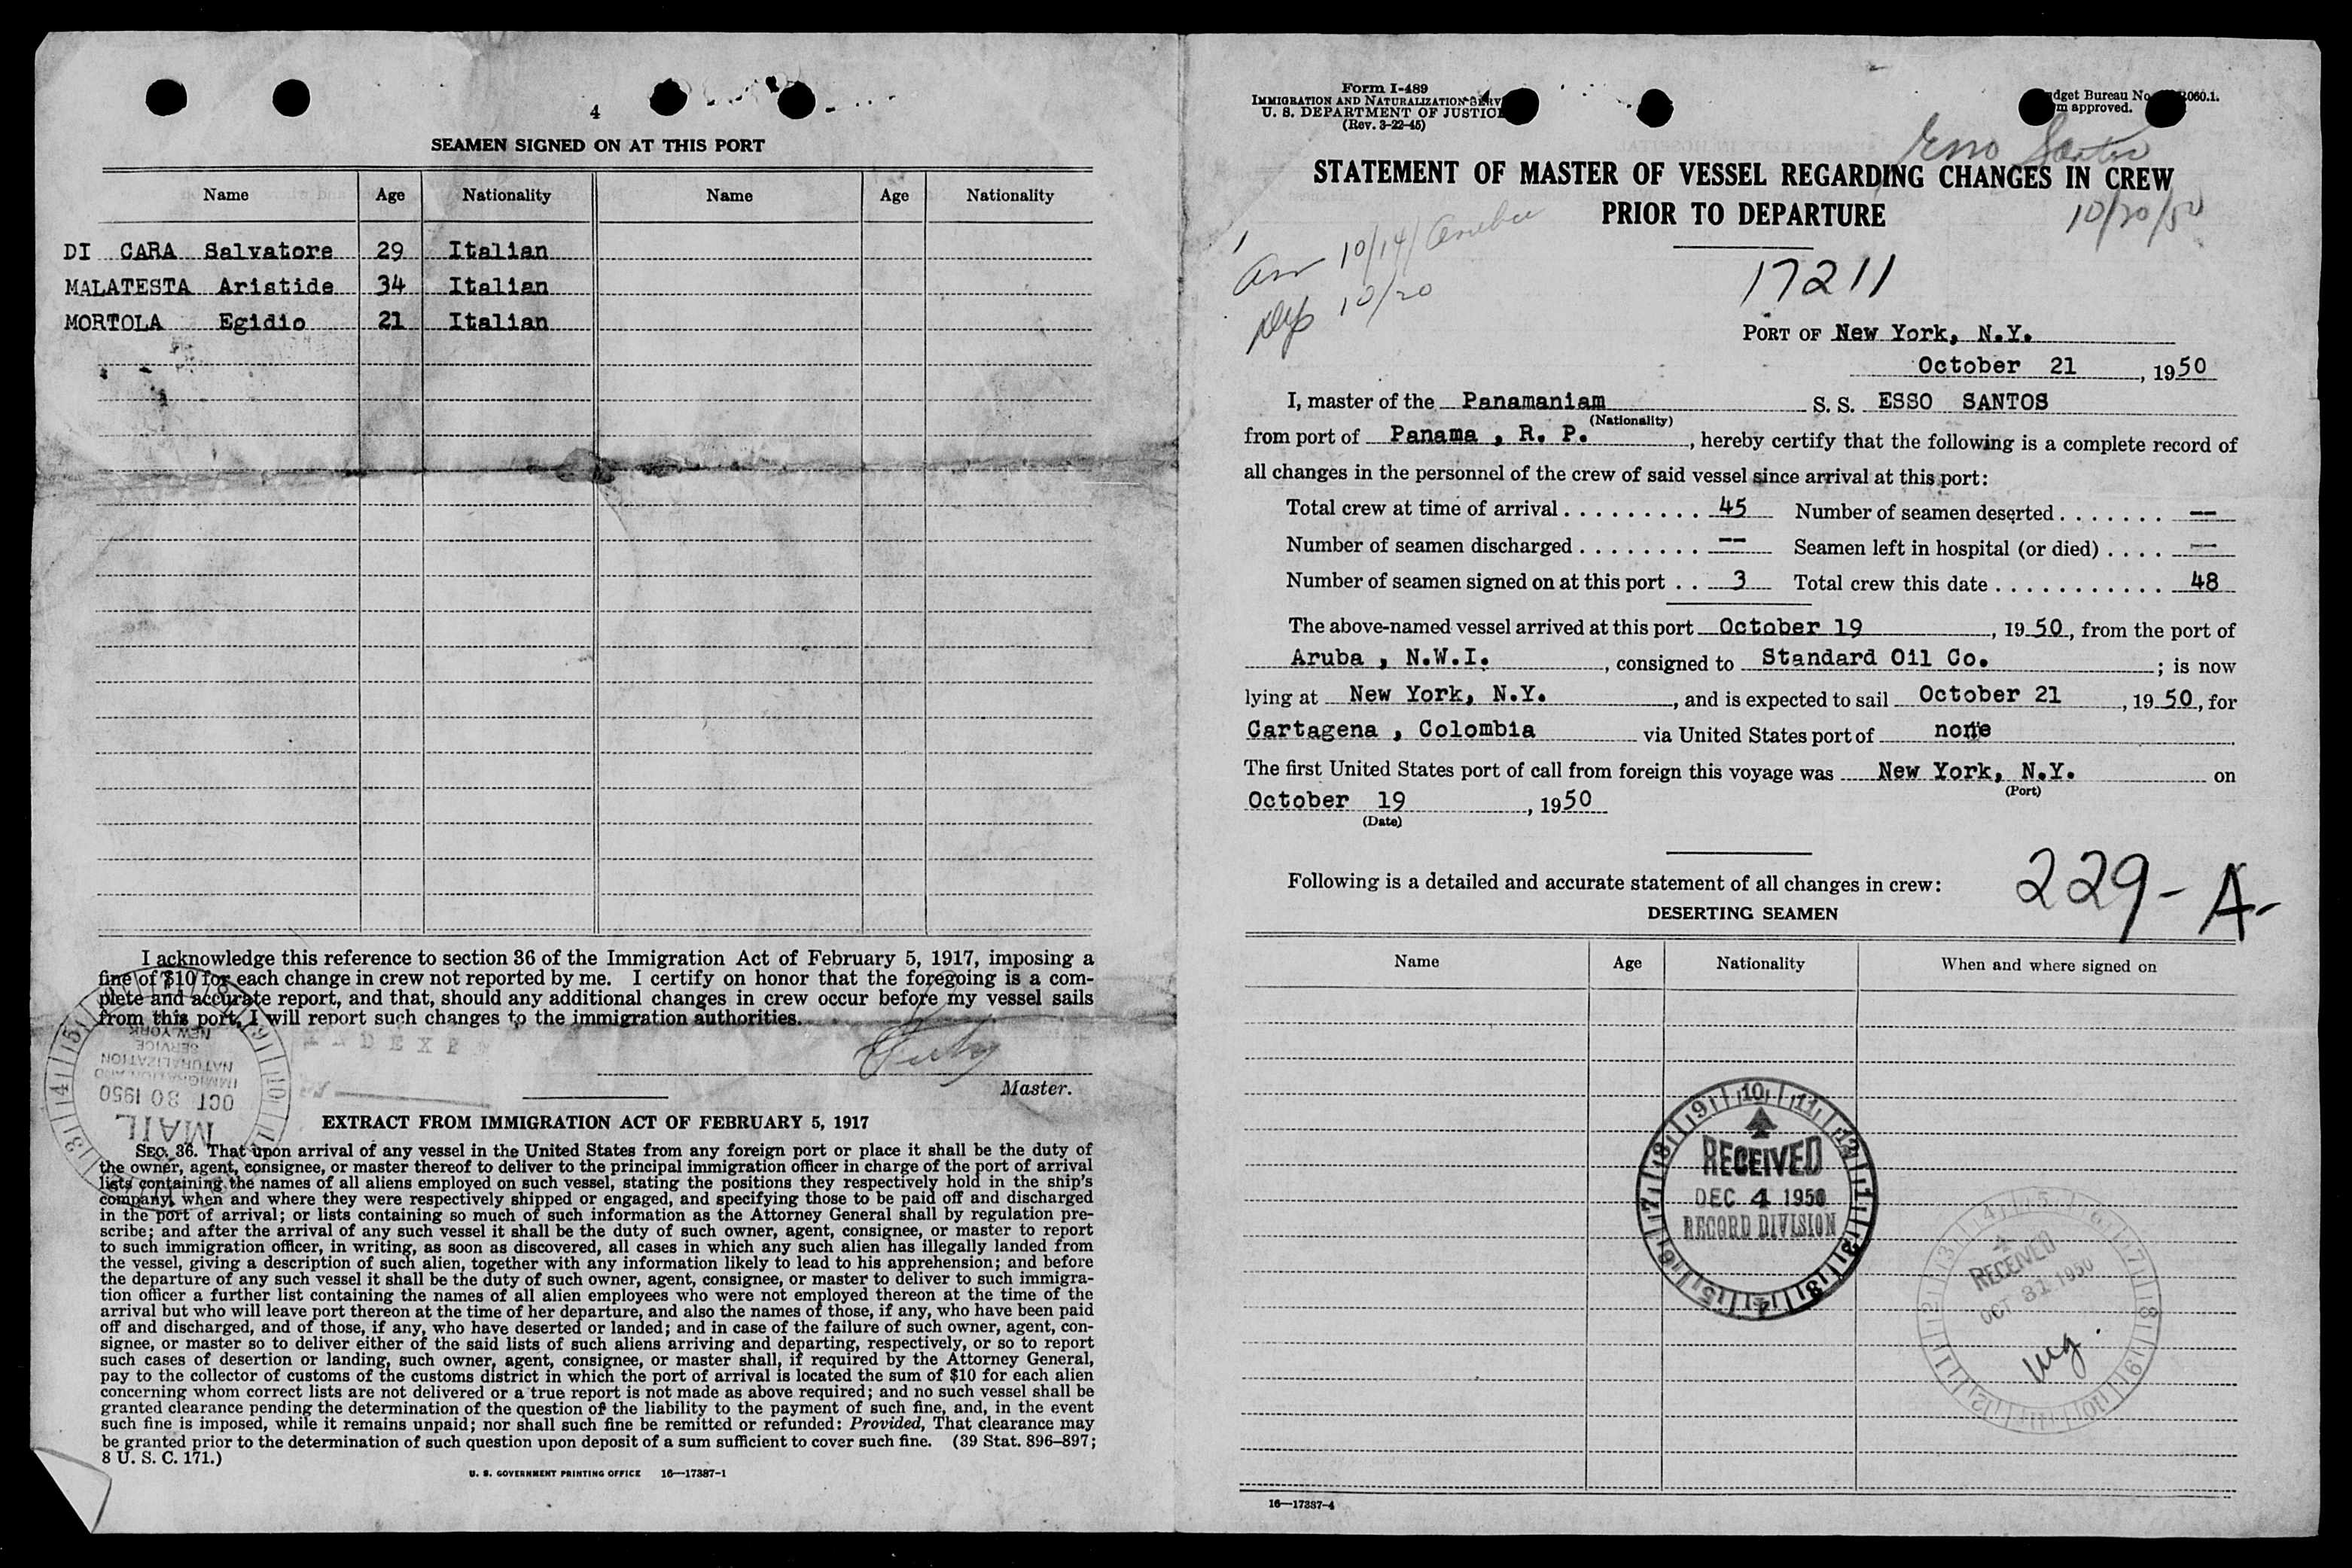 4
SEAMEN SIGNED ON AT THIS PORT
Name Age Nationality Name Age Nationality
DI CARA Salvatore 29 Italian
MALATESTA Aristide 34 Italian
MORTOLA Egidio 21 Italian
I acknowledge this reference to section 36 of the Immigration Act of February 5, 1917, imposing a
fine of $10 for each change in crew not reported by me. I certify on honor that the foregoing is a com-
plete and accurate report, and that, should any additional changes in crew occur before my vessel sails
from this port, I will report such changes to the immigration authorities.
Master.
NEW YORK
SERVICE
NATURALIZATION
IMMIGRATION AND
OCT 30 1950
MAIL
EXTRACT FROM IMMIGRATION ACT OF FEBRUARY 5, 1917
SEC. 36. That upon arrival of any vessel in the United States from any foreign port or place it shall be the duty of
the owner, agent, consignee, or master thereof to deliver to the principal immigration officer in charge of the port of arrival
lists containing the names of all aliens employed on such vessel, stating the positions they respectively hold in the ship's
company, when and where they were respectively shipped or engaged, and specifying those to be paid off and discharged
in the port of arrival; or lists containing so much of such information as the Attorney General shall by regulation pre-
scribe; and after the arrival of any such vessel it shall be the duty of such owner, agent, consignee, or master to report
to such immigration officer, in writing, as soon as discovered, all cases in which any such alien has illegally landed from
the vessel, giving a description of such alien, together with any information likely to lead to his apprehension; and before
the departure of any such vessel it shall be the duty of such owner, agent, consignee, or master to deliver to such immigra-
tion officer a further list containing the names of all alien employees who were not employed thereon at the time of the
arrival but who will leave port thereon at the time of her departure, and also the names of those, if any, who have been paid
off and discharged, and of those, if any, who have deserted or landed; and in case of the failure of such owner, agent, con-
signee, or master so to deliver either of the said lists of such aliens arriving and departing, respectively, or so to report
such cases of desertion or landing, such owner, agent, consignee, or master shall, if required by the Attorney General,
pay to the collector of customs of the customs district in which the port of arrival is located the sum of $10 for each alien
concerning whom correct lists are not delivered or a true report is not made as above required; and no such vessel shall be
granted clearance pending the determination of the question of the liability to the payment of such fine, and, in the event
such fine is imposed, while it remains unpaid; nor shall such fine be remitted or refunded: Provided, That clearance may
be granted prior to the determination of such question upon deposit of a sum sufficient to cover such fine. (39 Stat. 896–897;
8 U. S. C. 171.)
U. S. GOVERNMENT PRINTING OFFICE 16—17387-1
Form I-489
IMMIGRATION AND NATURALIZATION
U. S. DEPARTMENT OF JUSTICE
(Rev. 3-22-45)
Bureau No. 060.1.
approved.
Esso Santos
STATEMENT OF MASTER OF VESSEL REGARDING CHANGES IN CREW
PRIOR TO DEPARTURE
10/20/50
Arr 10/14/ Aruba
Dep 10/20
17211
PORT OF New York, N.Y.
October 21, 1950
I, master of the Panamaniam S. S. ESSO SANTOS
(Nationality)
from port of Panama , R. P., hereby certify that the following is a complete record of
all changes in the personnel of the crew of said vessel since arrival at this port:
Total crew at time of arrival . . . . . . . . . 45 Number of seamen deserted . . . . . . . --
Number of seamen discharged . . . . . . . . -- Seamen left in hospital (or died) . . . . --
Number of seamen signed on at this port . . 3 Total crew this date . . . . . . . . . . . 48
The above-named vessel arrived at this port October 19, 1950, from the port of
Aruba , N.W.I., consigned to Standard Oil Co.; is now
lying at New York, N.Y., and is expected to sail October 21, 1950, for
Cartagena , Colombia via United States port of none
The first United States port of call from foreign this voyage was New York, N.Y. on
(Port)
October 19, 1950
(Date)
Following is a detailed and accurate statement of all changes in crew:
229-A-
DESERTING SEAMEN
Name Age Nationality When and where signed on
RECEIVED
DEC 4 1950
RECORD DIVISION
RECEIVED
OCT 31 1950
16—17387-4